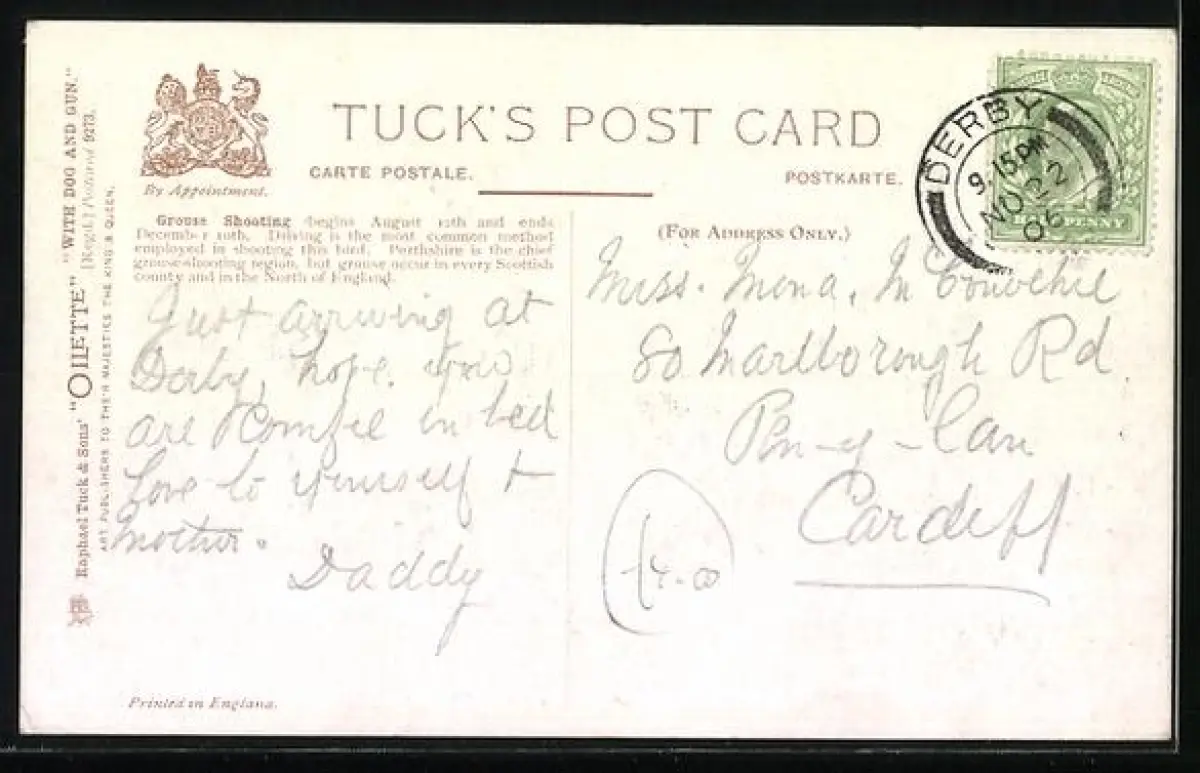 "WITH DOG AND GUN."
[Regd.] Postcard 9273.
Raphael Tuck & Sons' "OILETTE"
ART PUBLISHERS TO THEIR MAJESTIES THE KING & QUEEN.
By Appointment.
TUCK'S POST CARD
CARTE POSTALE.
POSTKARTE.
Grouse Shooting begins August 12th and ends
December 10th. Driving is the most common method
employed in shooting this bird. Perthshire is the chief
grouse-shooting region, but grouse occur in every Scottish
county and in the North of England.
Just arriving at
Derby, hope you
are Komfie in bed
Love to yourself &
Mother.
Daddy
(FOR ADDRESS ONLY.)
DERBY
9.15 PM
NO 22
06
PENNY
Miss. Mona. Mc
80 Marlborough Rd
Pen-y-lan
Cardiff
Printed in England.